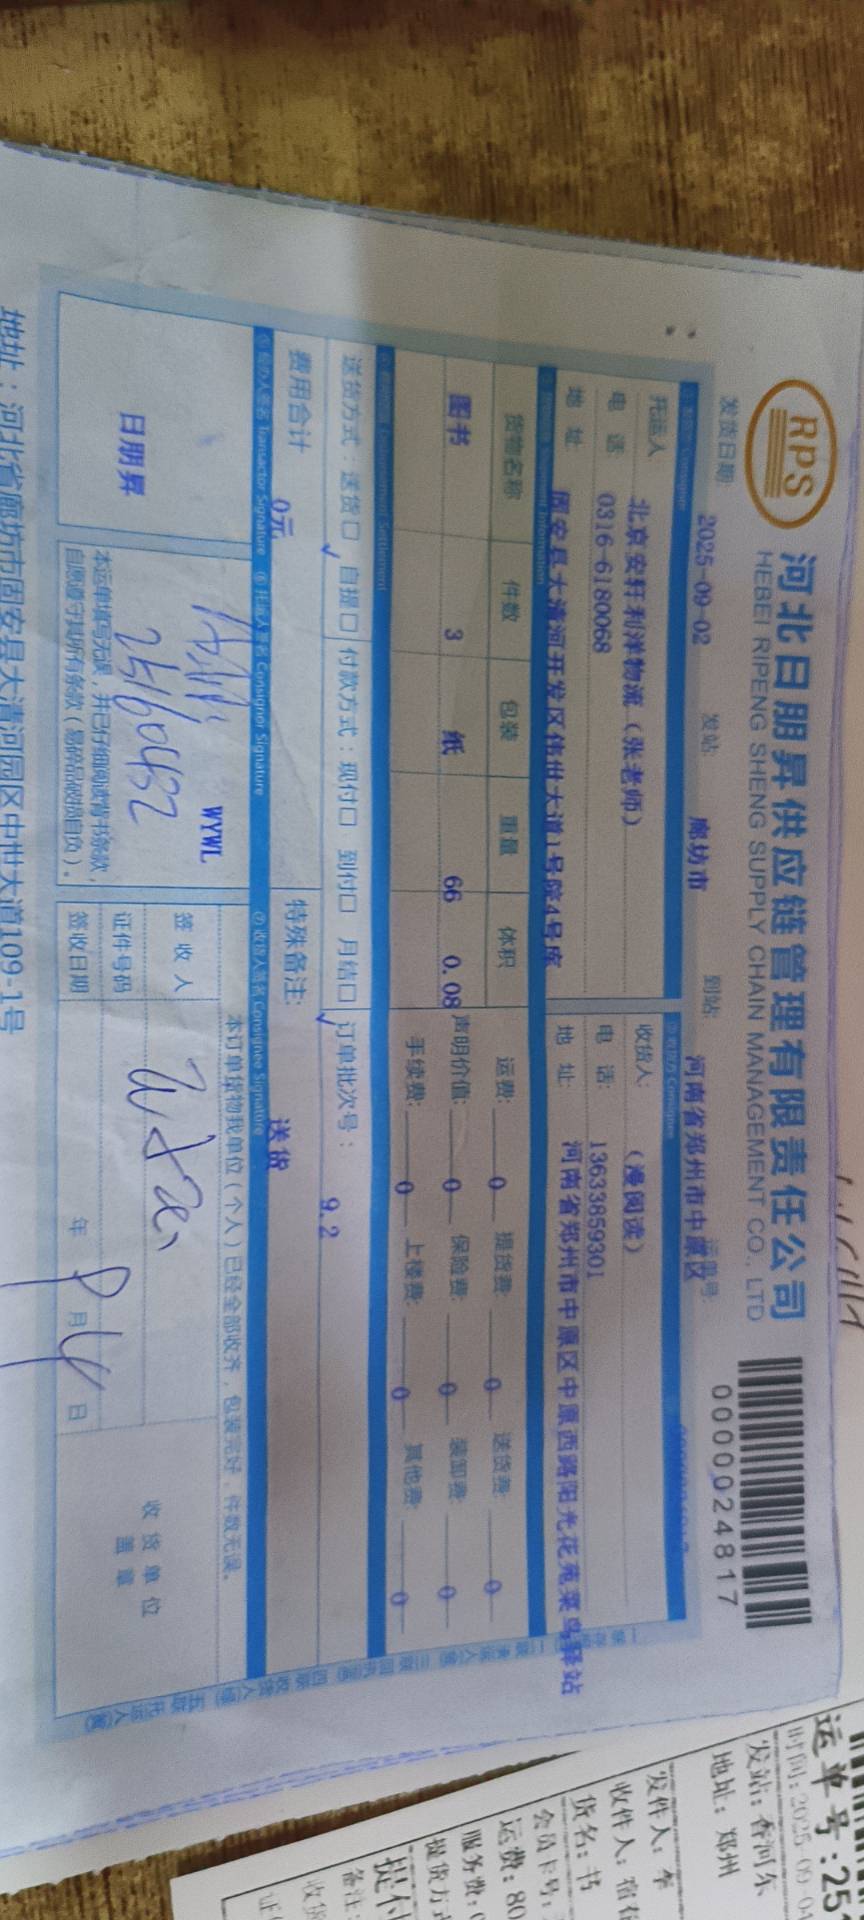 RPS
河北日朋昇供应链管理有限责任公司
HEBEI RIPENG SHENG SUPPLY CHAIN MANAGEMENT CO., LTD
0000024817
发货日期: 2025-09-02 发站: 廊坊市 到站: 河南省郑州市中原区 运单号:
托运人: 北京安轩利洋物流（张老师） 收货人: （漫阅读）
电 话: 0316-6180068 电 话: 13633859301
地 址: 固安县大清河开发区伟世大道1号院4号库 地 址: 河南省郑州市中原区中原西路阳光花苑菜鸟驿站
货物名称 件数 包装 重量 体积 运费: 0 提货费: 0 送货费: 0
图书 3 纸 66 0.08 声明价值: 0 保险费: 0 装卸费: 0
手续费: 0 上楼费: 0 其他费: 0
送货方式：送货□ 自提□ 付款方式：现付□ 到付□ 月结□ 订单批次号： 9.2
费用合计 0元 特殊备注: 送货
Transactor Signature ⑥托运人签名 Consignor Signature ⑦收货人签名 Consignee Signature
本订单货物我单位（个人）已经全部收齐，包装完好，件数无误。
日朋昇
WYWL
25160432
签 收 人
证件号码
签收日期 年 9 月 4 日
收货单位
盖章
本运单填写无误，并已仔细阅读背书条款，
自愿遵守其所有条款（易碎品破损自负）。
地址：河北省廊坊市固安县大清河园区中世大道109-1号
运单号:251
时间:2025-09-04
发站:香河东
地址: 郑州
发件人: 李
收件人: 宿
货名: 书
会员卡号:
运费: 80
服务费: 0
提货方式
提付
备注:
收货